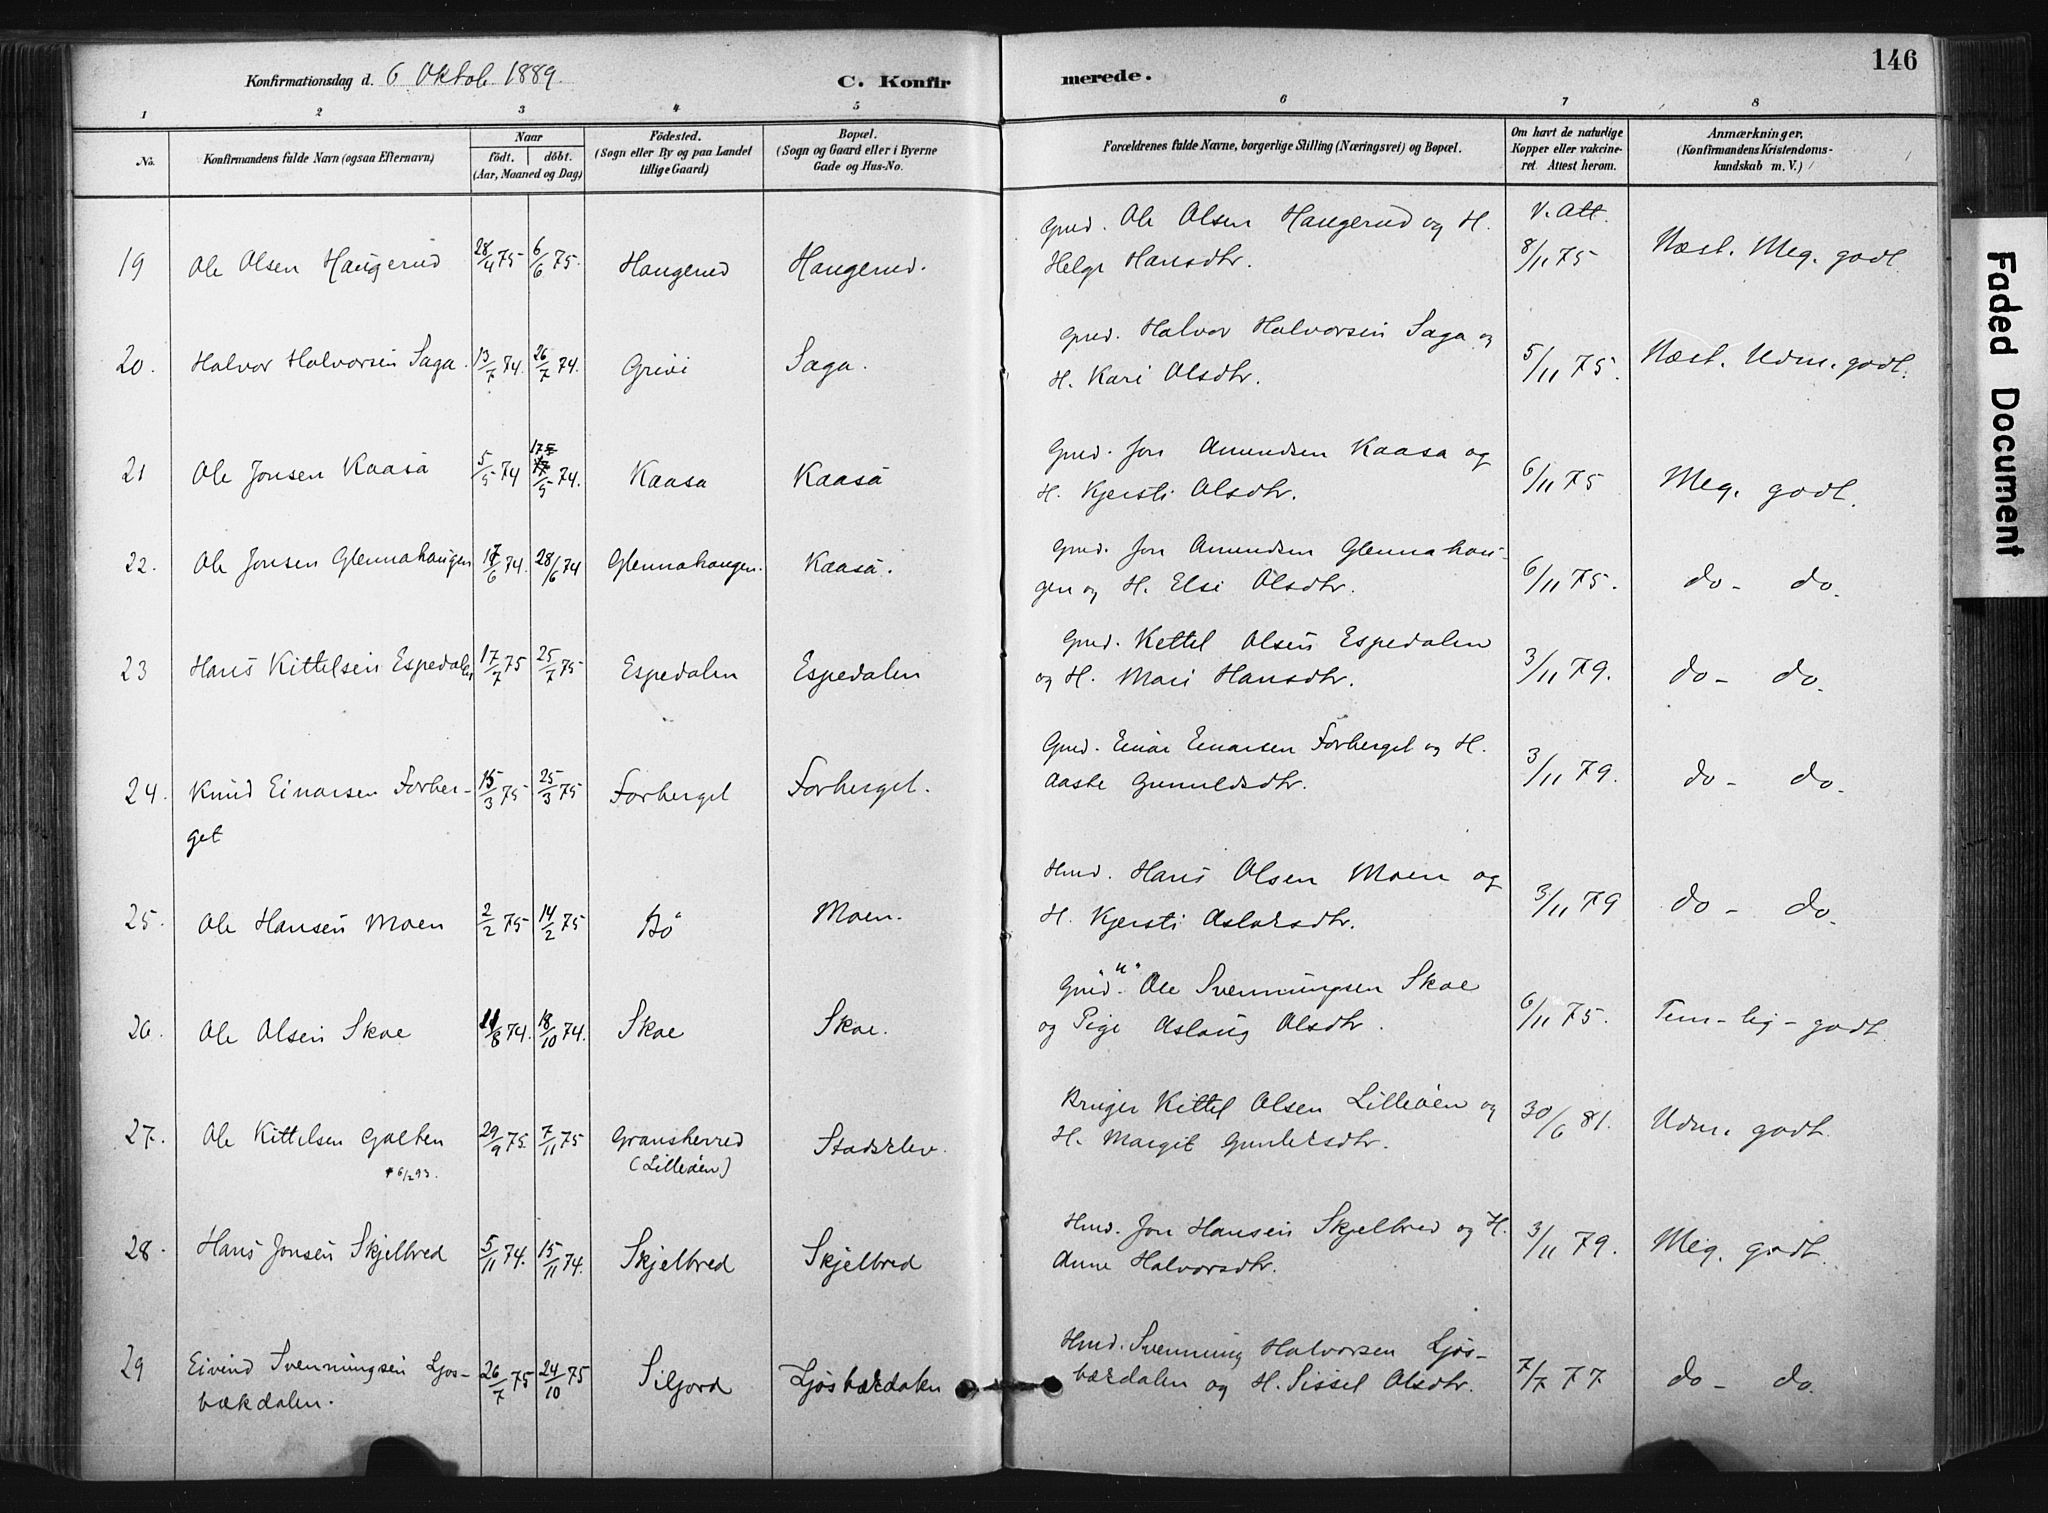 146
Konfirmationsdag d. 6 Oktob. 1889.
C. Konfirmerede.
1 2 3 4 5 6 7 8
No.
Konfirmandens fulde Navn (ogsaa Efternavn)
Naar
födt. döbt.
(Aar, Maaned og Dag)
Födested.
(Sogn eller By og paa Landet
tillige Gaard)
Bopæl.
(Sogn og Gaard eller i Byerne
Gade og Hus-No.
Forældrenes fulde Navne, borgerlige Stilling (Næringsvei) og Bopæl.
Om havt de naturlige
Kopper eller vakcine-
ret. Attest herom.
Anmærkninger.
(Konfirmandens Kristendoms-
kundskab m. V.)
19 Ole Olsen Haugerud 28/4 75 6/6 75. Haugerud Haugerud. Gmd. Ole Olsen Haugerud og H. V. Att. 8/11 75 Næst. Meg. godt.
Helge Hansdtr.
20. Halvor Halvorsen Saga. 13/7 74. 26/7 74. Grivi Saga. Gmd. Halvor Halvorsen Saga og 5/11 75. Næst. Udm. godt.
H. Kari Olsdtr.
21 Ole Jonsen Kaasa 5/5 74 17/5 74. Kaasa Kaasa Gmd. Jon Amundsen Kaasa og 6/11 75 Meg. godt.
H. Kjersti Olsdtr.
22. Ole Jonsen Glennahaugen 17/6 74. 28/6 74 Glennahaugen. Kaasa. Gmd. Jon Amundsen Glennahau- 6/11 75. do - do.
gen og H. Elsi Olsdtr.
23 Hans Kittelsen Espedalen 17/7 75 25/7 75 Espedalen Espedalen Gmd. Kettel Olsen Espedalen 3/11 79. do - do.
og H. Mari Hansdtr.
24. Knud Einarsen Forber- 15/3 75 25/3 75 Forberget Forberget. Gmd. Einar Einarsen Forberget og H. 3/11 79. do - do.
get
Aaste Gunuldsdtr.
25. Ole Hansen Moen 2/2 75 14/2 75 Bö Moen. Hmd. Hans Olsen Moen og 3/11 79 do - do.
H. Kjersti Aslaksdtr.
26. Ole Olsen Skoe 11/8 74. 18/10 74. Skoe Skoe. Gmd. "u" Ole Svenningsen Skoe 6/11 75. Tem-lig-godt.
og Pige Aslaug Olsdtr.
27. Ole Kittelsen Galten 29/9 75. 7/11 75 Gransherred Stadsklev. Bruger Kittel Olsen Lilleöen og 30/6 81. Udm. godt.
6/2 93. (Lilleöen) H. Margit Gunleksdtr.
28. Hans Jonsen Skjelbred 5/11 74. 15/11 74. Skjelbred Skjelbred Hmd. Jon Hansen Skjelbred og H. 3/11 79. Meg. godt.
Anne Halvorsdtr.
29 Eivind Svenningsen Ljos- 26/7 75 24/10 75 Siljord Ljosbækdalen Hmd. Svenning Halvorsen Ljös- 7/7 77. do - do.
bækdalen. bækdalen og H. Sissel Olsdtr.
Faded Document